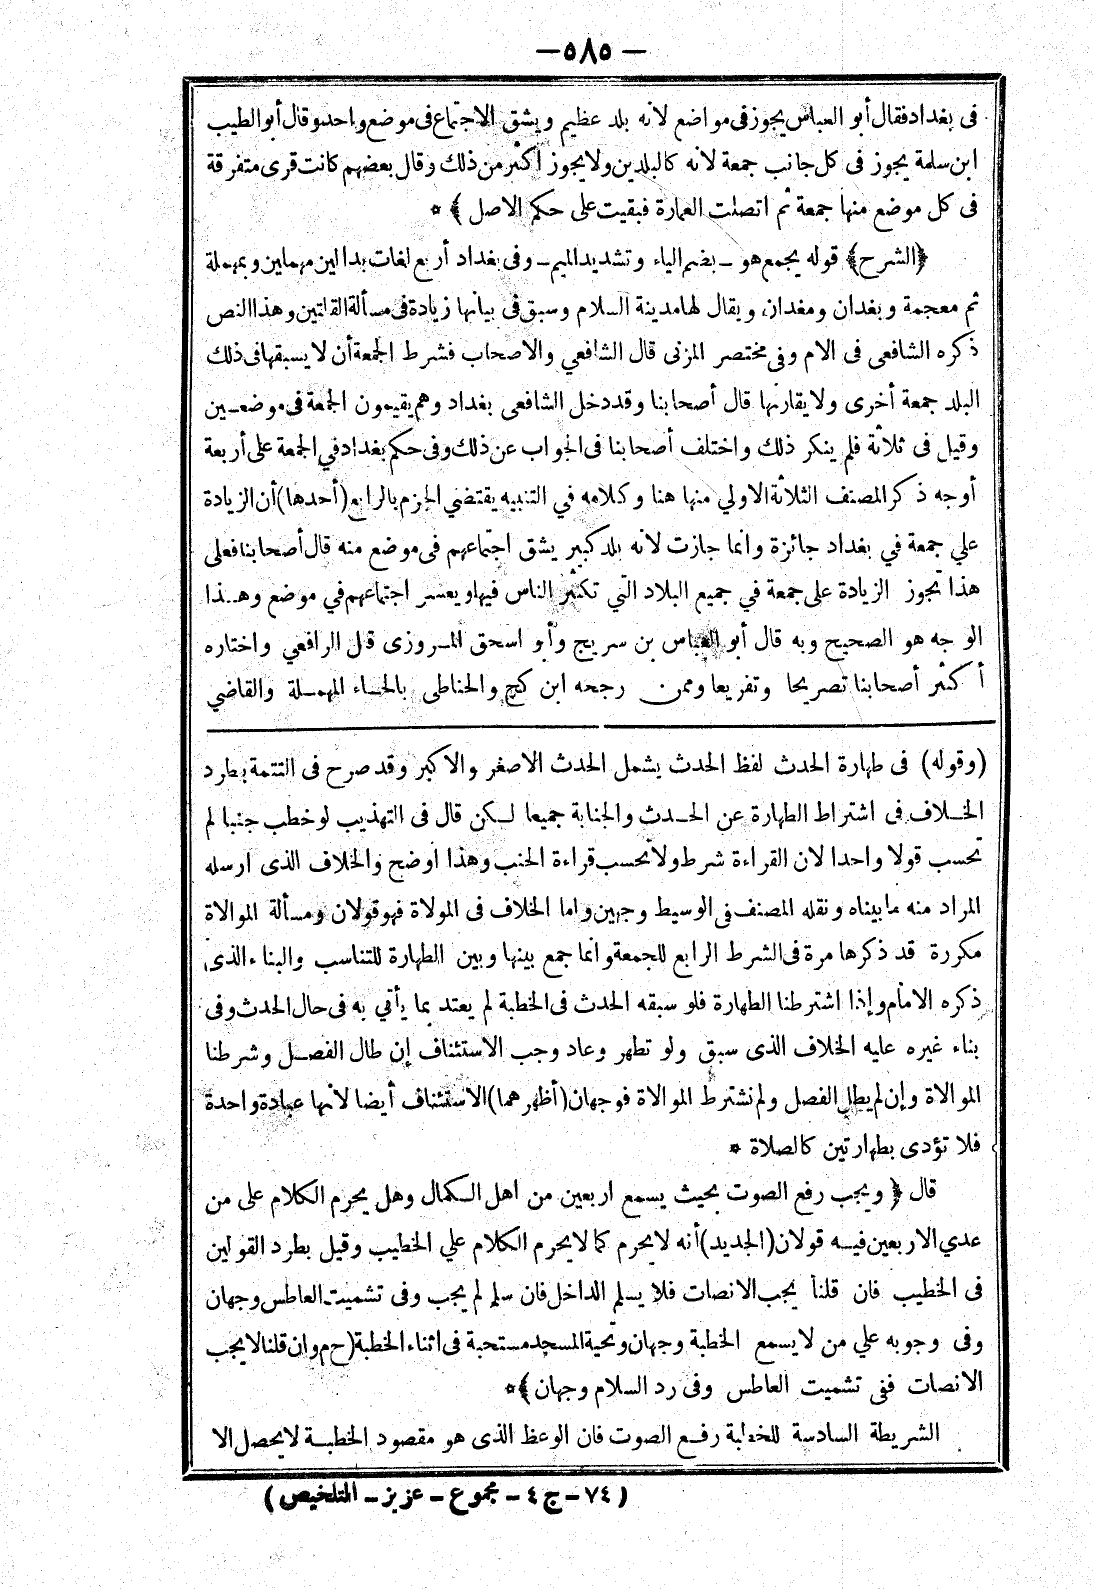 — ٥٨٥ —
فى بغداد فقال أبو العباس يجوز فى مواضع لانه بلد عظيم ويشق الاجتماع فى موضع واحد وقال أبو الطيب
ابن سلمة يجوز فى كل جانب جمعة لانه كالبلدين ولا يجوز أكثر من ذلك وقال بعضهم كانت قرى متفرقة
فى كل موضع منها جمعة ثم اتصلت العمارة فبقيت على حكم الاصل ﴾ *
﴿الشرح﴾ قوله يجمع هو ـ بضم الياء وتشديد الميم ـ وفى بغداد أربع لغات بدالين مهملين وبمهملة
ثم معجمة وبغدان ومغدان، ويقال لها مدينة السلام وسبق فى بيانها زيادة فى مسألة القلتين وهذا النص
ذكره الشافعى فى الام وفى مختصر المزنى قال الشافعي والاصحاب فشرط الجمعة أن لا يسبقها فى ذلك
البلد جمعة أخرى ولا يقارنها قال أصحابنا وقد دخل الشافعى بغداد وهم يقيمون الجمعة فى موضعـين
وقيل فى ثلاثة فلم ينكر ذلك واختلف أصحابنا فى الجواب عن ذلك وفى حكم بغداد في الجمعة على أربعة
أوجه ذكر المصنف الثلاثة الاولي منها هنا وكلامه في التنبيه يقتضي الجزم بالرابع (أحدها) أن الزيادة
علي جمعة في بغداد جائزة وانما جازت لانه بلد كبير يشق اجتماعهم فى موضع منه قال أصحابنا فعلى
هذا تجوز الزيادة على جمعة في جميع البلاد التي تكثر الناس فيها ويعسر اجتماعهم في موضع وهـذا
الوجه هو الصحيح وبه قال أبو العباس بن سريج وأبو اسحق المـروزى قال الرافعي واختاره
أكثر أصحابنا تصريحا وتفريعا وممن رجحه ابن كج والحناطى بالحـاء المهمـلة والقاضي
(وقوله) فى طهارة الحدث لفظ الحدث يشمل الحدث الاصغر والاكبر وقد صرح فى التتمة بطرد
الخـلاف فى اشتراط الطهارة عن الحـدث والجنابة جميعا لـكن قال فى التهذيب لو خطب جنبا لم
تحسب قولا واحدا لان القراءة شرط ولا تحسب قراءة الجنب وهذا اوضح والخلاف الذى ارسله
المراد منه ما بيناه ونقله المصنف فى الوسيط وجهين واما الخلاف فى المولاة فهو قولان ومسألة الموالاة
مكررة قد ذكرها مرة فى الشرط الرابع للجمعة وانما جمع بينها وبين الطهارة للتناسب والبناء الذى
ذكره الامام وإذا اشترطنا الطهارة فلو سبقه الحدث فى الخطبة لم يعتد بما يأتي به فى حال الحدث وفى
بناء غيره عليه الخلاف الذى سبق ولو تطهر وعاد وجب الاستئناف إن طال الفصـل وشرطنا
الموالاة وإن لم يطل الفصل ولم نشترط الموالاة فوجهان (أظهرهما) الاستئناف أيضا لانها عبادة واحدة
فلا تؤدى بطهارتين كالصلاة *
قال ﴿ ويجب رفع الصوت بحيث يسمع اربعين من اهل الـكمال وهل يحرم الكلام على من
عدي الاربعين فيـه قولان (الجديد) أنه لا يحرم كما لا يحرم الكلام علي الخطيب وقيل بطرد القولين
فى الخطيب فان قلنا يجب الانصات فلا يسلم الداخل فان سلم لم يجب وفى تشميت العاطس وجهان
وفى وجوبه علي من لا يسمع الخطبة وجهان وتحية المسجد مستحبة فى اثناء الخطبة (ح م و ان قلنا لا يجب
الانصات ففى تشميت العاطس وفى رد السلام وجهان ﴾ *
الشريطة السادسة للخطبة رفـع الصوت فان الوعظ الذى هو مقصود الخطبـة لا يحصل الا
( ٧٤ ـ ج ٤ ـ مجموع ـ عزيز ـ التلخيص )